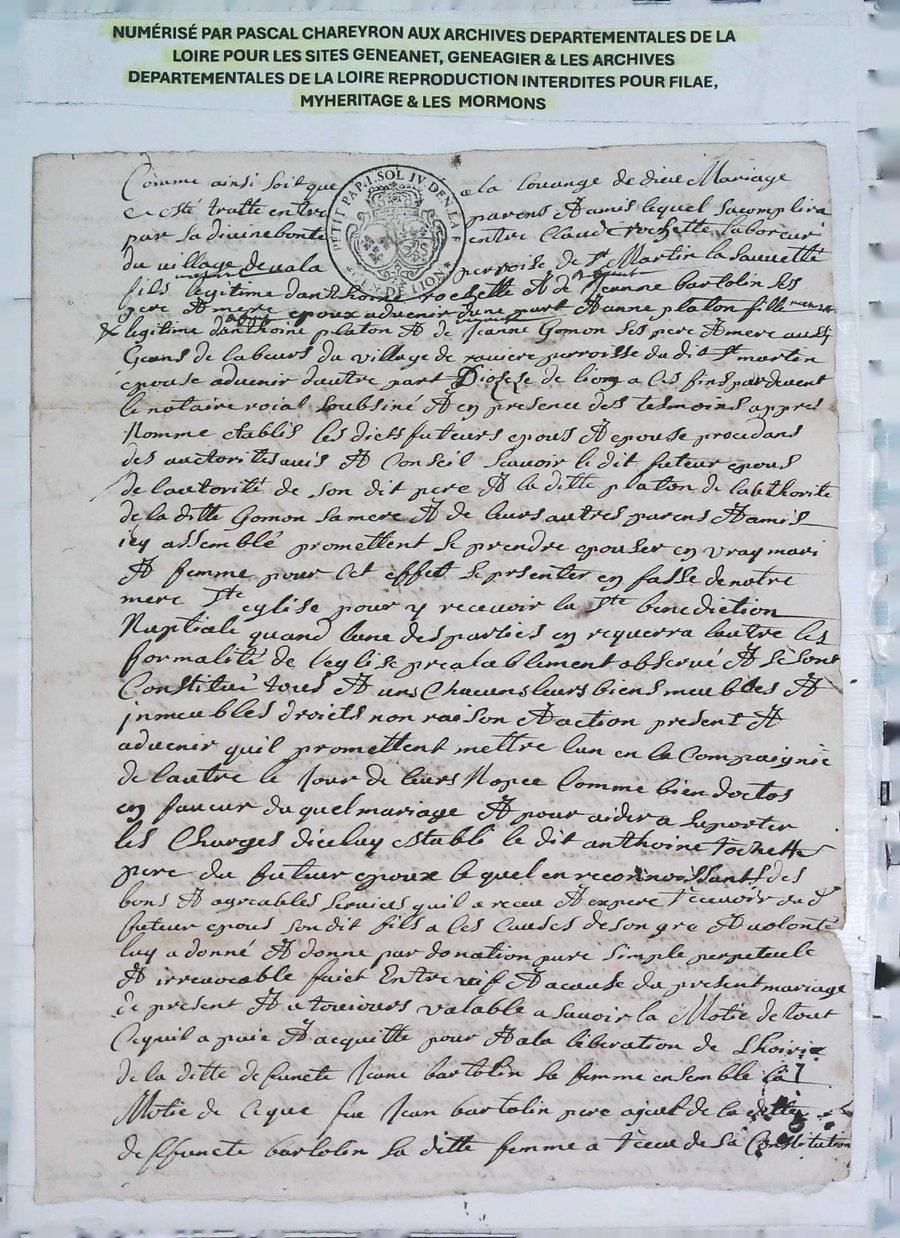 NUMÉRISÉ PAR PASCAL CHAREYRON AUX ARCHIVES DEPARTEMENTALES DE LA
LOIRE POUR LES SITES GENEANET, GENEAGIER & LES ARCHIVES
DEPARTEMENTALES DE LA LOIRE REPRODUCTION INTERDITES POUR FILAE,
MYHERITAGE & LES MORMONS
PETIT PAP. I. SOL IV. DEN. LA F.
GEN. DE LION
Comme ainsi soit que a la louange de dieu Mariage
ce esté traitte entre parens & amis lequel sacomplira
par sa divine bonte entre Claude rochette laboreur
du village de vala perroise de st Martin la sauvetté
fils legitime danthoine rochette & de Jeanne bartolin ses
pere & mere epoux advenir dune part & anne platon fille
legitime danthoine platon & de Jeanne Gomon ses pere & mere aussi
Gens de labeurs du village de raviere perroisse du dit st martin
epouse advenir dautre part Diocese de lion a ces fins pardevent
le notaire roial soubsiné & en presence des tesmoins appres
Nomme establis les dicts futeurs epous & epouse procedans
des auctorites avis & Conseil scavoir le dit futeur epous
de lautorité de son dit pere & la ditte platon de lauthorité
de la ditte Gomon sa mere & de leurs autres parens & amis
icy assemblé promettent se prendre epouser en vray mari
& femme pour cet effet se presenter en fasse de notre
mere ste eglise pour y recevoir la ste benediction
Nuptiale quand lune des parties en requerra lautre les
formalité de leglise prealablement observé & se sont
Constitué tous & uns Chacuns leurs biens meubles &
inmeubles droicts non raison & action present &
advenir quil promettent mettre lun en la Compaignie
de lautre le Jour de leurs Nopce Comme bien doctos
en faveur du quel mariage & pour aider a suporter
les Charges diceluy establi le dit anthoine rochette
pere du futeur epoux lequel en reconnoissants des
bons & agreables services quil a receu & expere recevoir du d
futeur epous son dit fils a les Causes de son gre & volonté
luy a donné & donne par donation pure simple perpetuele
& irrevocable faict Entre vif & a cause du present mariage
de present & a toujours valable a savoir la Motie de tout
Cequil a paié & acquitte pour & a la liberation de Lhoirie
de la ditte defuncte Jeane bartolin sa femme ensemble la
Motie de Ceque feu Jean bartolin pere ajeul de la ditte
deffuncte bartolin sa ditte femme a receu de sa Constitution